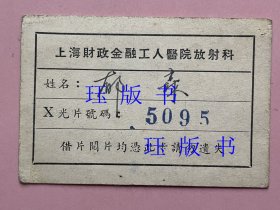 上海財政金融工人醫院放射科
姓名：
X光片號碼：5095
借片閱片均憑此卡請勿遺失
珏版书
珏版书